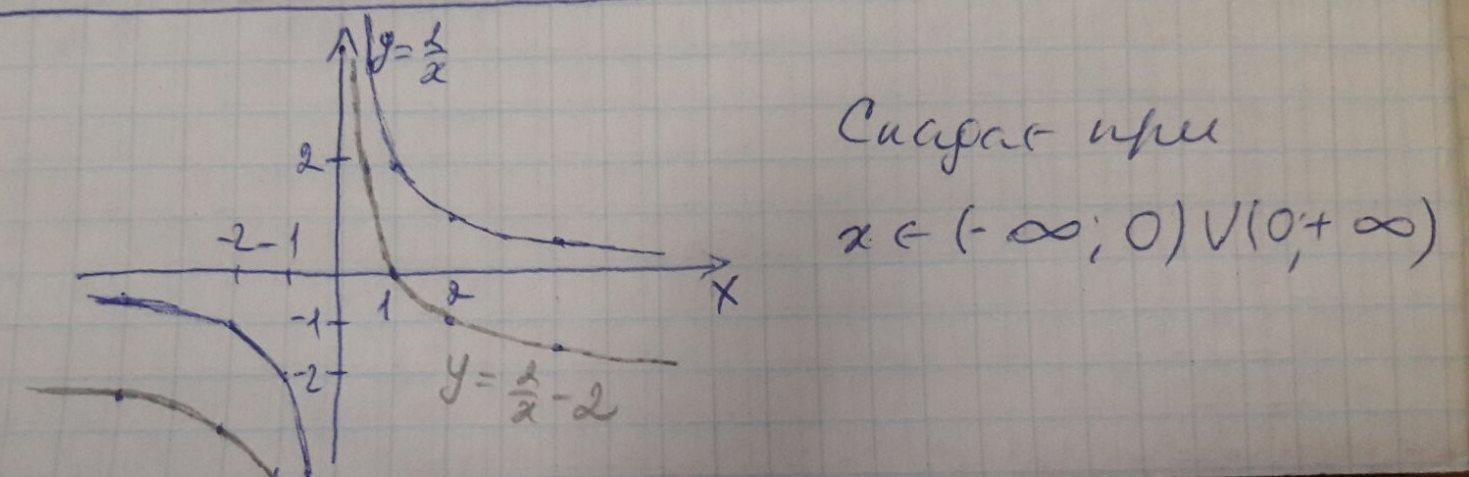 y = 2/x
2
-2 -1
1 2
X
-1
-2
y = 2/x - 2
Спадає при
x ∈ (-∞; 0) ∪ (0; +∞)